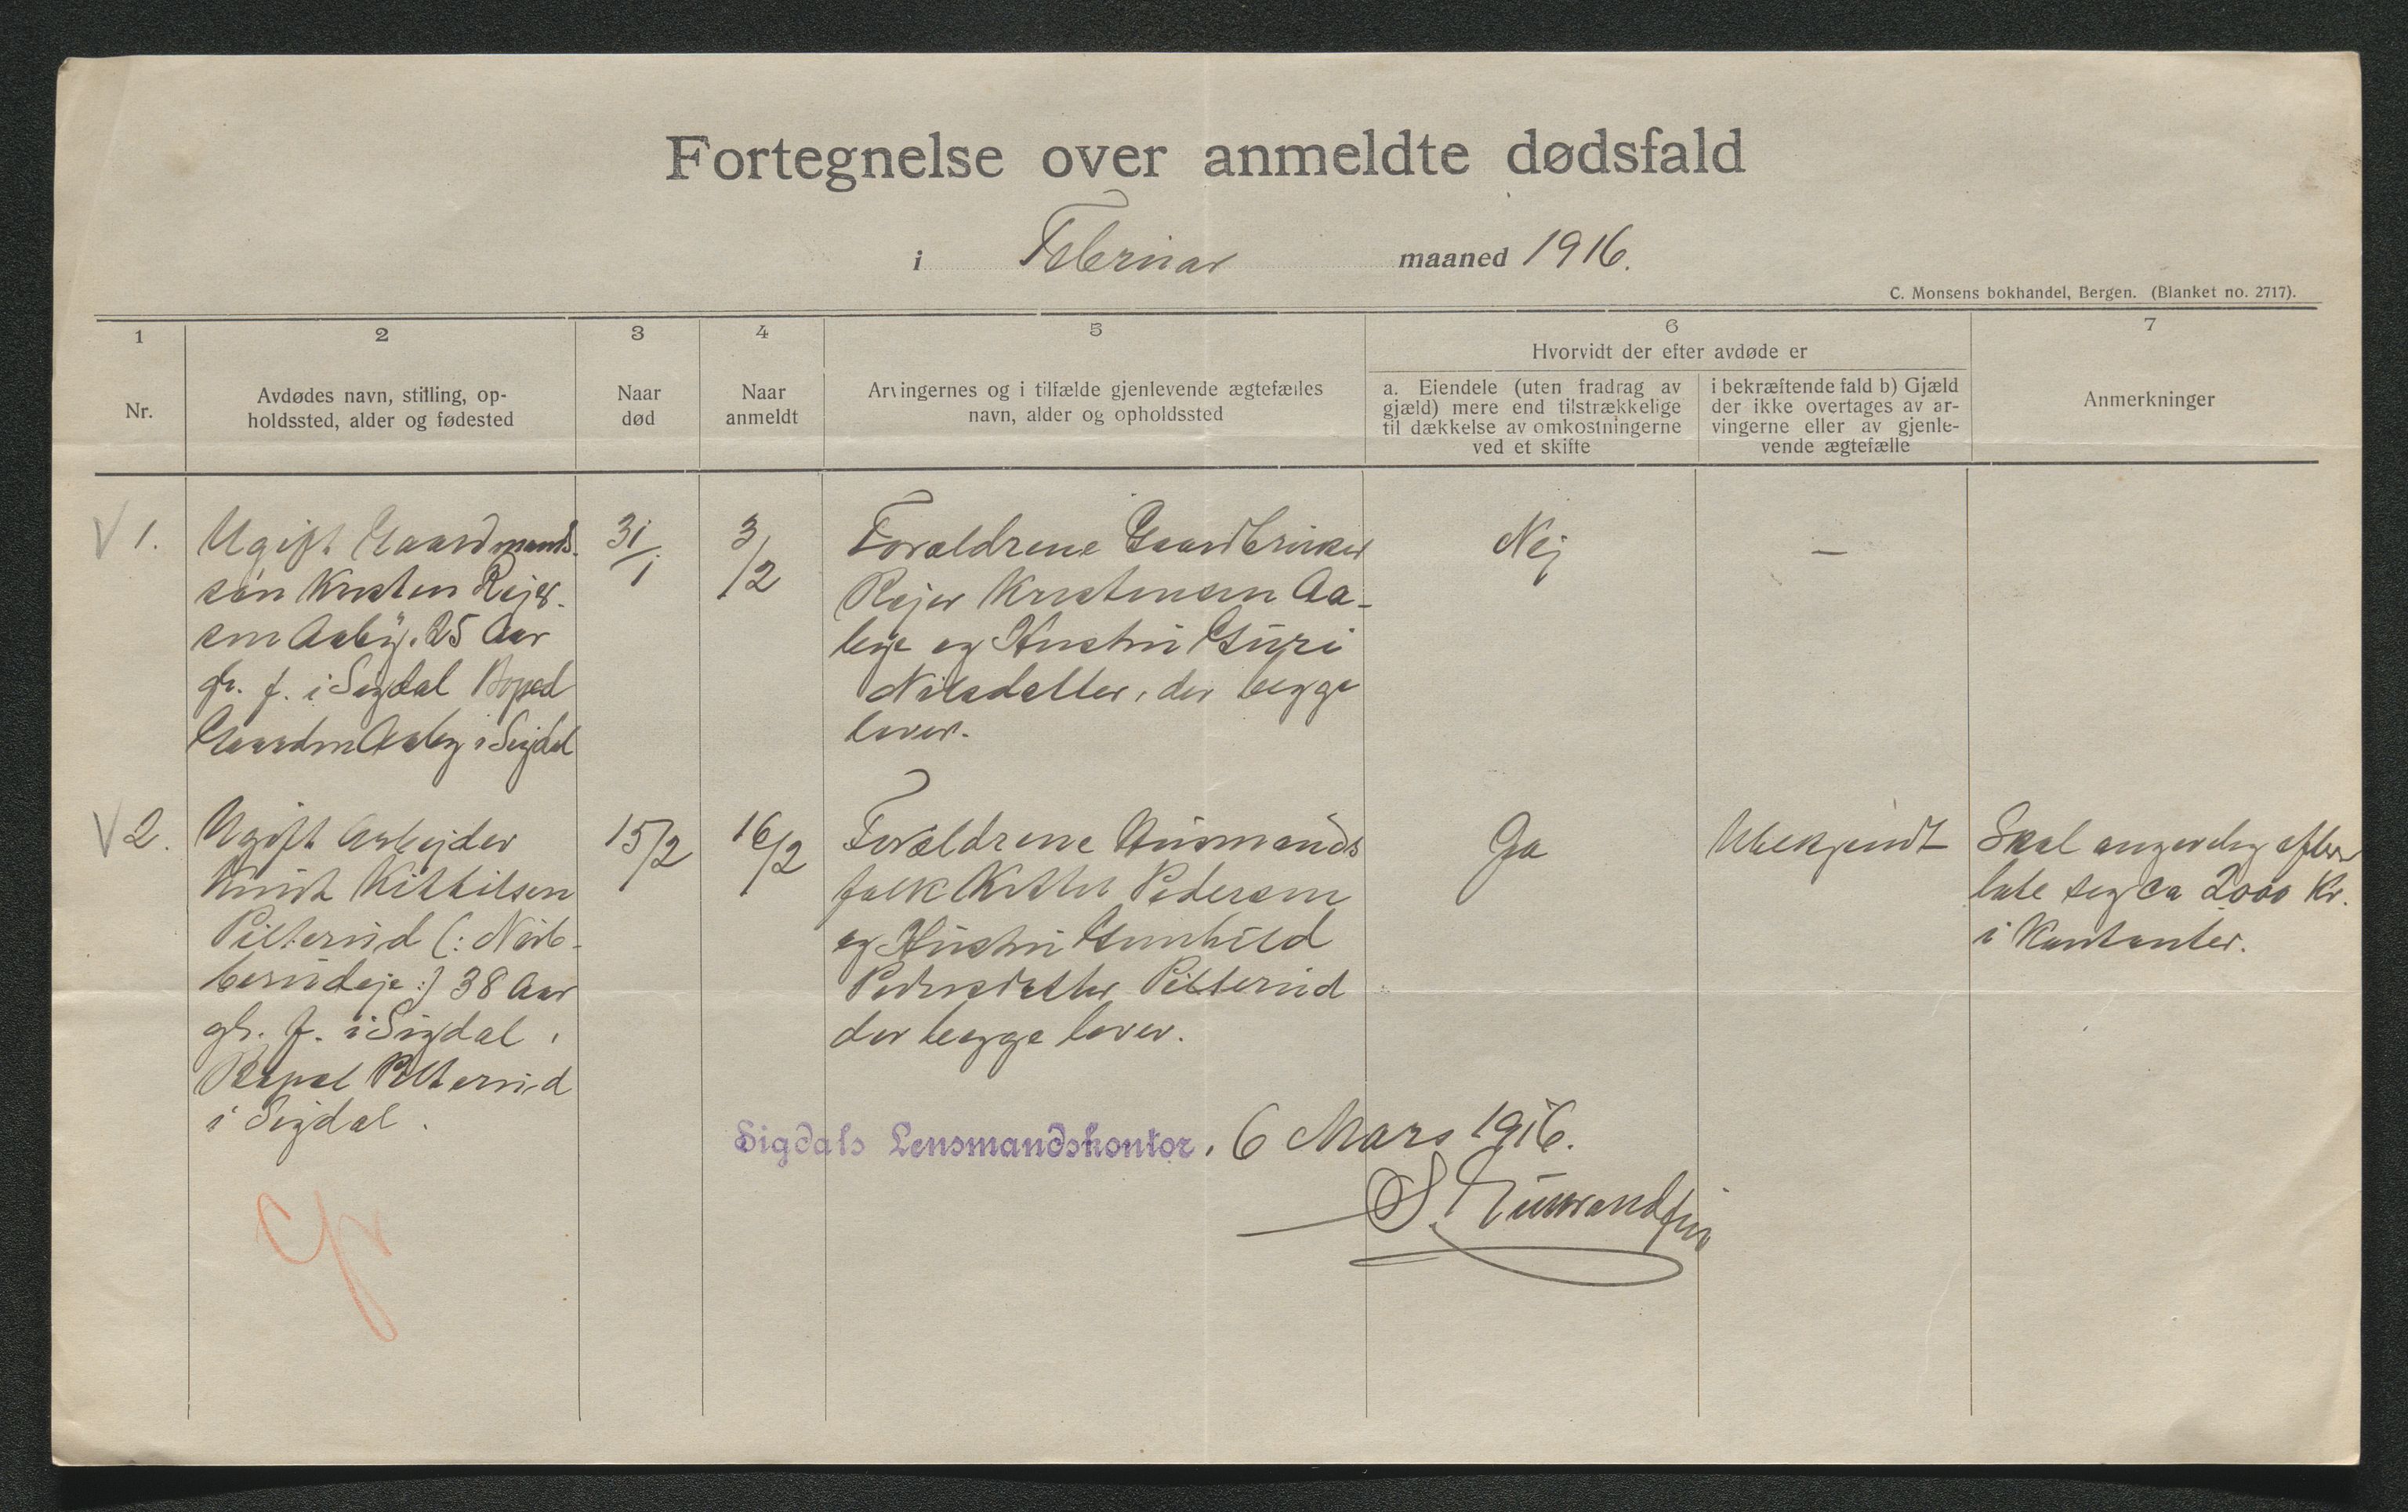 Fortegnelse over anmeldte dødsfald
i Februar maaned 1916.
C. Monsens bokhandel, Bergen. (Blanket no. 2717).
1
Nr.
2
Avdødes navn, stilling, op-
holdssted, alder og fødested
3
Naar
død
4
Naar
anmeldt
5
Arvingernes og i tilfælde gjenlevende ægtefælles
navn, alder og opholdssted
6
Hvorvidt der efter avdøde er
a. Eiendele (uten fradrag av
gjæld) mere end tilstrækkelige
til dækkelse av omkostningerne
ved et skifte
i bekræftende fald b) Gjæld
der ikke overtages av ar-
vingerne eller av gjenle-
vende ægtefælle
7
Anmerkninger
1.
Ugift Gaardmands
søn Kristen Rejer-
sen Aaby. 25 Aar
gl. f. i Sigdal Boped
Gaarden Aaby i Sigdal
31/1
3/2
Forældrene Gaardbruker
Rejer Kristensen Aa-
bye og Hustru Guri
Nilsdatter, der begge
lever.
Nej
—
2.
Ugift Arbejder
Knut Kittilsen
Pilterud (: Narb-
berudeje :) 38 Aar
gl. f. i Sigdal,
Bopæl Pilterud
i Sigdal.
15/2
16/2
Forældrene Husmands
folk Kittil Pedersen
og Hustru Gunhild
Pedersdatter Pilterud
der begge lever.
Ja
Ubekjendt
Skal angivelig efter-
late sig ca 2000 Kr.
i Kontanter.
Sigdals Lensmandskontor, 6 Mars 1916.